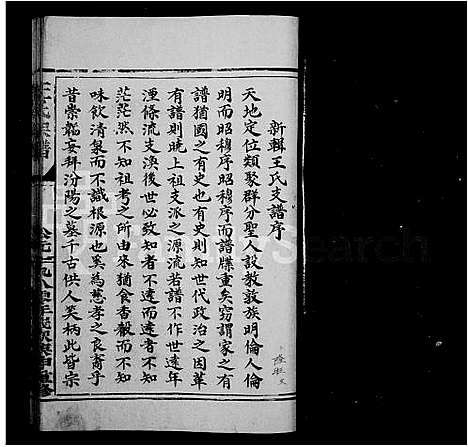 新輯王氏支譜序
天地定位類聚群分聖人設教敦族明倫人倫
明而昭穆序昭穆序而譜牒重矣窃謂家之有
譜猶國之有史也有史則知世代政治之因革
有譜則曉上祖支派之源流若譜不作世遠年
湮條流支渙後世必致知者不遠而遠者
茫茫然不知祖考之所由來猶食香穀而不知
味飲清泉而不識根源也奚為慈孝之良裔乎
昔崇韜妄拜汾陽之墓千古供人笑柄此皆宗
王氏宗譜